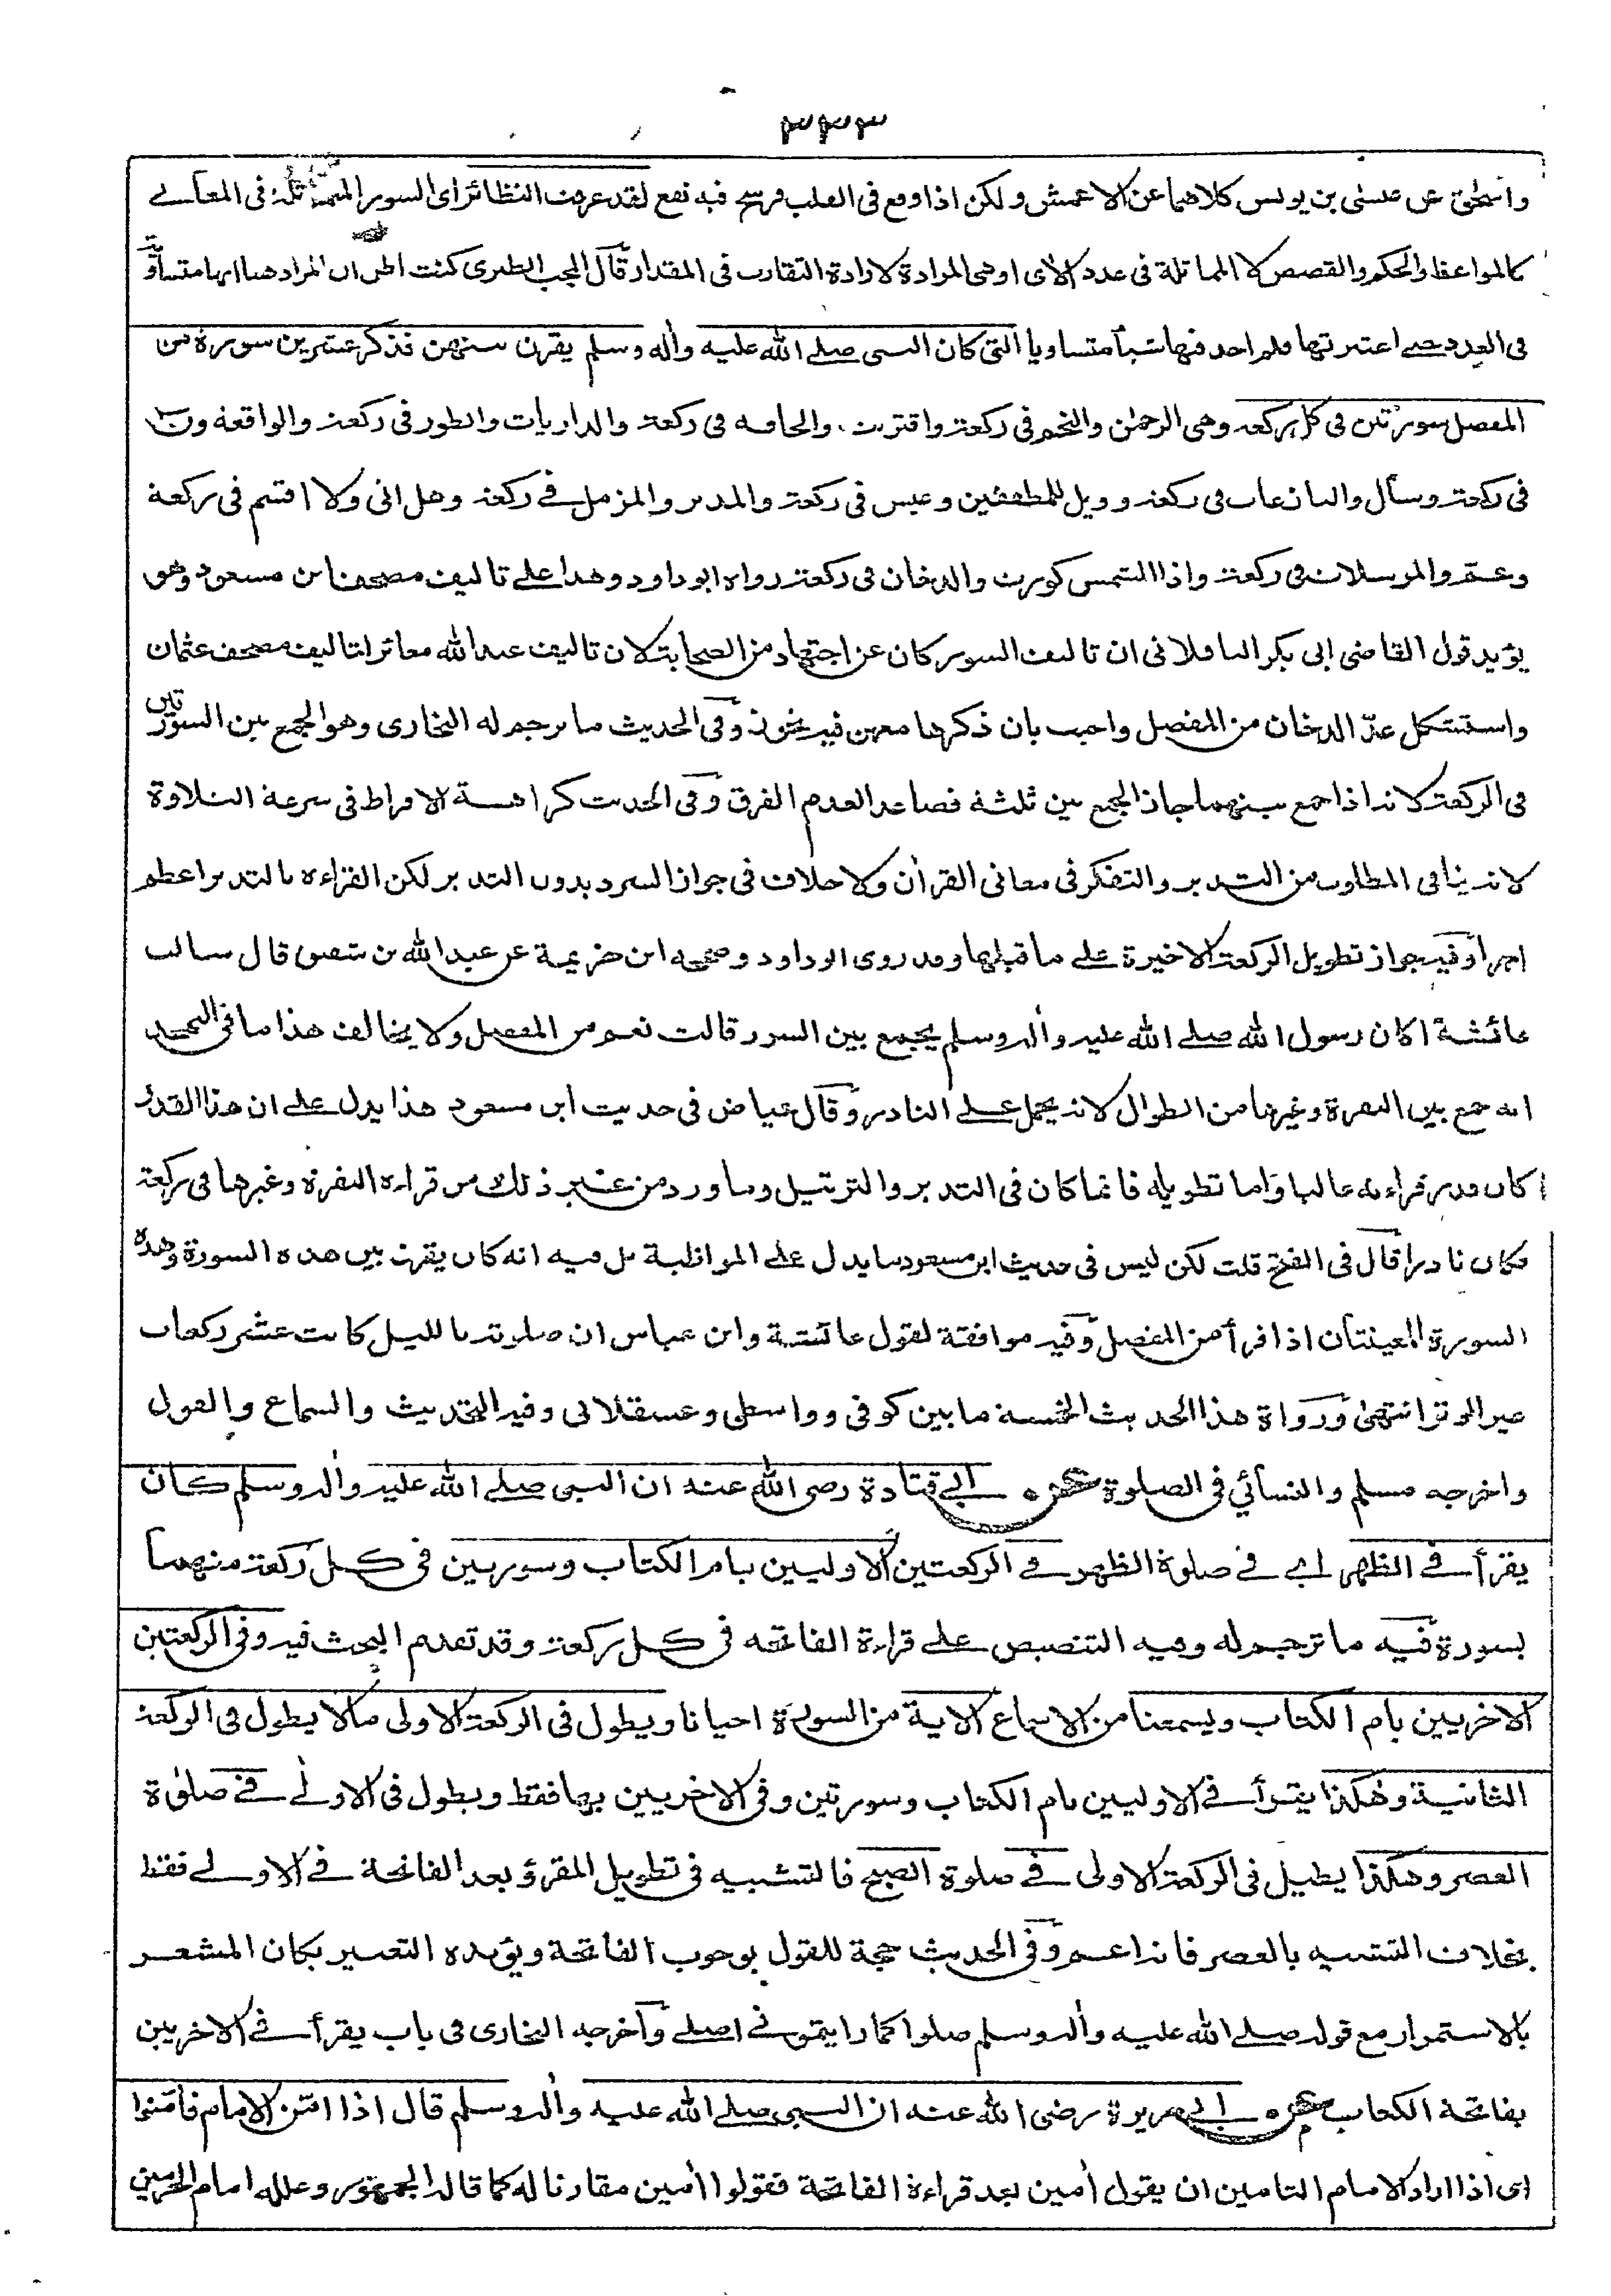 ٣٣٣
واسحٰق عن عيسى بن يونس كلاهما عن الاعمش ولكن اذا وقع فى القلب فرسخ فيه نفع لقد عرفت النظائر اى السور المتماثلة فى المعانے
كالمواعظ والحكم والقصص لا المماثلة فى عدد الاٰى او هى المرادة لارادة التقارب فى المقدار قال المحب الطبرى كنت اظن ان المراد هنا انها متساوية
فى العدد حتے اعتبرتها فلم اجد فيها شيأ متساويا التى كان النبى صلے الله عليه واٰله وسلم يقرن بينهن فذكر عشرين سورة من
المفصل سورتين فى كل ركعة وهى الرحمٰن والنجم فى ركعة واقتربت والحاقه فى ركعة والذاريات والطور فى ركعة والواقعة ون
فى ركعة وسأل والنازعات فى ركعة وويل للمطففين وعبس فى ركعة والمدثر والمزمل فے ركعة وهل اتى ولا اقسم فى ركعة
وعمّ والمرسلات فى ركعة واذا الشمس كورت والدخان فى ركعة رواه ابو داود وهذا علے تاليف مصحف ابن مسعود وهو
يؤيد قول القاضى ابى بكر الباقلانى ان تاليف السور كان عن اجتهاد من الصحابة لان تاليف عبد الله مغائر لتاليف مصحف عثمان
واستشكل عدّ الدخان من المفصل واجيب بان ذكرها معهن فيه تجوز وفى الحديث ما ترجم له البخارى وهو الجمع بين السورتين
فى الركعة لانه اذا جمع بينهما جاز الجمع بين ثلثة فصاعدا لعدم الفرق وفى الحديث كراهة الافراط فى سرعة التلاوة
لانه ينافى المطلوب من التدبر والتفكر فى معانى القراٰن ولا خلاف فى جواز السرد بدون التدبر لكن القراءة بالتدبر اعظم
اجرا وفيه جواز تطويل الركعة الاخيرة علے ما قبلها وقد روى ابو داود وصححه ابن خزيمة عن عبد الله بن شقيق قال سالت
عائشة اكان رسول الله صلے الله عليه واٰله وسلم يجمع بين السور قالت نعم من المفصل ولا يخالف هذا ما فى التهجد
انه جمع بين البقرة وغيرها من الطوال لانه يحمل علے النادر وقال عياض فى حديث ابن مسعود هذا يدل علے ان هذا القدر
كان قدر قراءته غالبا واما تطويله فانما كان فى التدبر والترتيل وما ورد من غير ذلك من قراءة البقرة وغيرها فى ركعة
فكان نادرا قال فى الفتح قلت لكن ليس فى حديث ابن مسعود ما يدل علے المواظبة بل فيه انه كان يقرن بين هذه السورة وهذه
السورة المعينتان اذا قرأ من المفصل وفيه موافقة لقول عائشة وابن عباس ان صلوته بالليل كانت عشر ركعات
غير الوتر انتهىٰ ورواة هذا الحديث الخمسة ما بين كوفى وواسطى وعسقلانى وفيه التحديث والسماع والقول
واخرجه مسلم والنسائي فى الصلوة عن ابے قتادة رضى الله عنه ان النبى صلے الله عليه واٰله وسلم كان
يقرأ فے الظهر اے فے صلوة الظهر فے الركعتين الاوليين بام الكتاب وسورتين فى كل ركعة منهما
بسورة فيه ما ترجم له وفيه التنصيص علے قراءة الفاتحه فى كل ركعة وقد تقدم البحث فيه وفى الركعتين
الاخريين بام الكتاب ويسمعنا من الاسماع الاية من السورة احيانا ويطول فى الركعة الاولى ما لا يطول فى الركعة
الثانية وهٰكذا يقرأ فے الاوليين بام الكتاب وسورتين وفى الاخريين بها فقط ويطول فى الاولے فے صلوٰة
العصر وهكذا يطيل فى الركعة الاولى فے صلوة الصبح فالتشبيه فى تطويل المقرؤ بعد الفاتحة فے الاولے فقط
بخلاف التشبيه بالعصر فانه اعم وفى الحديث حجة للقول بوجوب الفاتحة ويؤيده التعبير بكان المشعر
بالاستمرار مع قوله صلے الله عليه واٰله وسلم صلوا كما رايتمونے اصلے وآخرجه البخارى فى باب يقرأ فے الاخريين
بفاتحة الكتاب عن ابے هريرة رضى الله عنه ان النبى صلے الله عليه واٰله وسلم قال اذا امّن الامام فامّنوا
اى اذا اراد الامام التامين ان يقول اٰمين بعد قراءة الفاتحة فقولوا اٰمين مقارنا له كما قاله الجمهور وعلله امام الحرمين